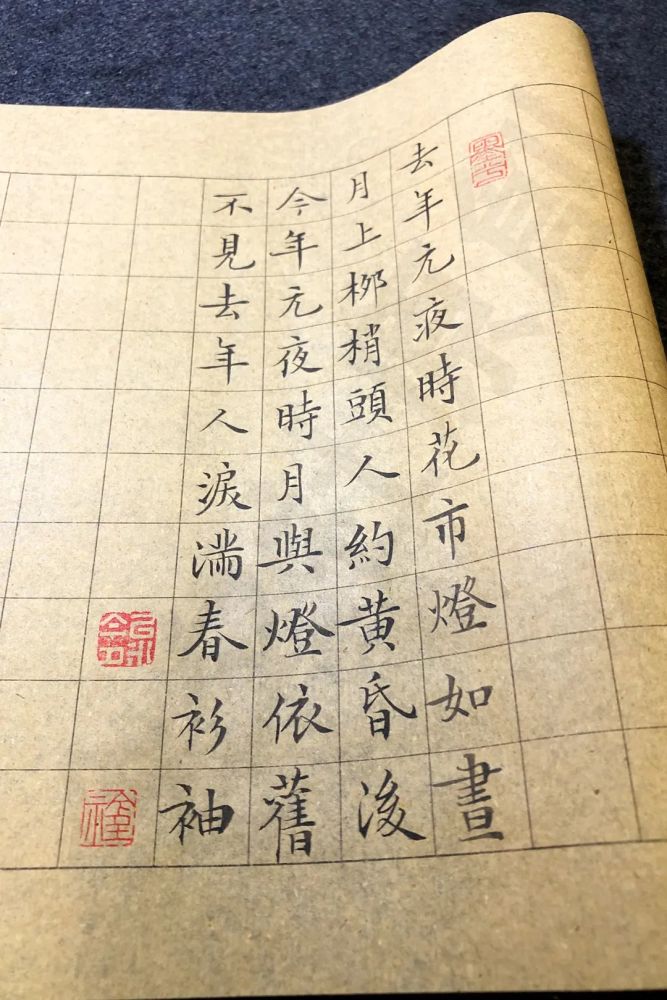 去年元夜時花市燈如晝
月上柳梢頭人約黃昏後
今年元夜時月與燈依舊
不見去年人淚濡春衫袖